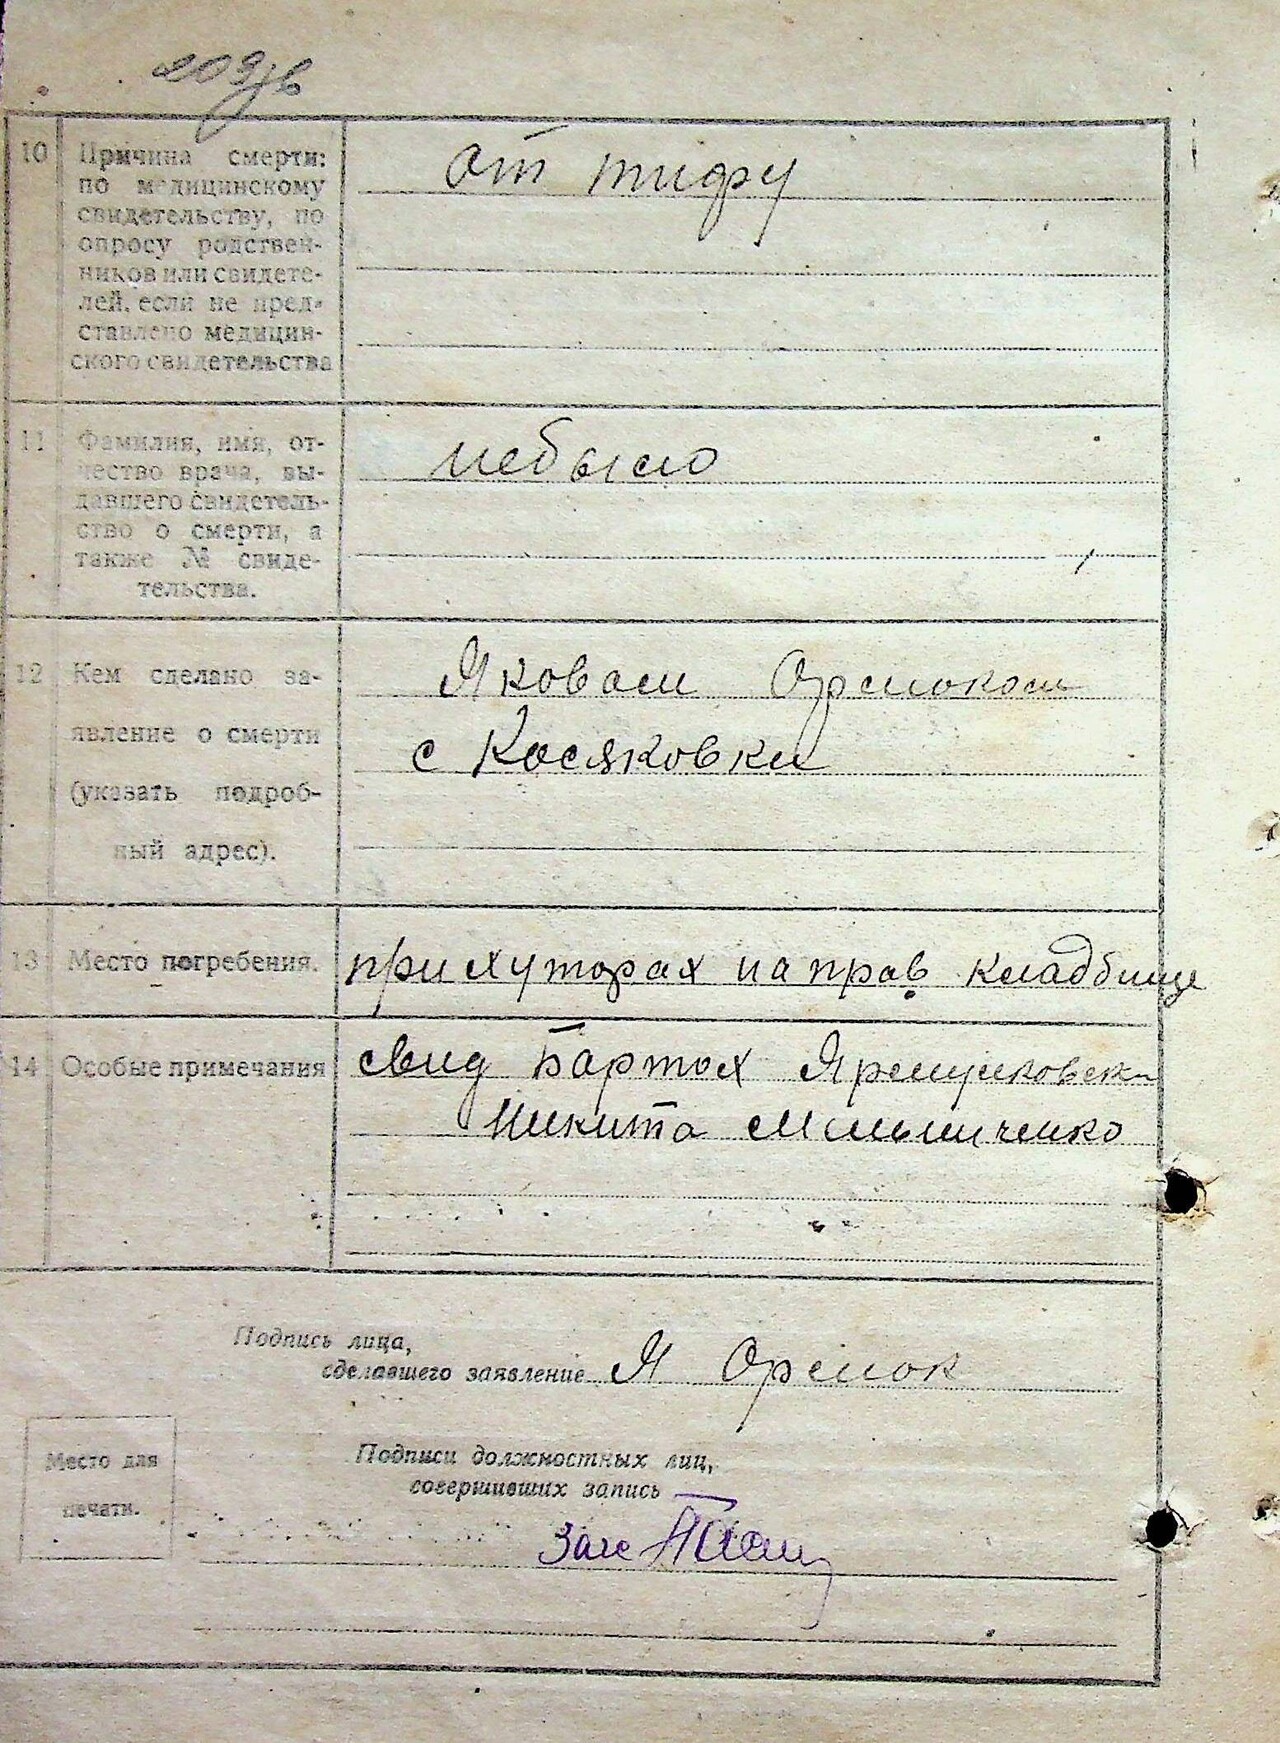 209зв
10 Причина смерти:
по медицинскому
свидетельству, по
опросу родствен-
ников или свидете-
лей, если не пред-
ставлено медицин-
ского свидетельства
от тифу
11 Фамилия, имя, от-
чество врача, вы-
давшего свидетель-
ство о смерти, а
также № свиде-
тельства.
небыло
12 Кем сделано за-
явление о смерти
(указать подроб-
ный адрес).
Яковом Орлюком
с Косяковки
13 Место погребения.
при хуторах на прав кладбище
14 Особые примечания
свид Бартох
Никита Мельниченко
Подпись лица,
сделавшего заявление Я Орлюк
Место для
печати.
Подписи должностных лиц,
совершивших запись